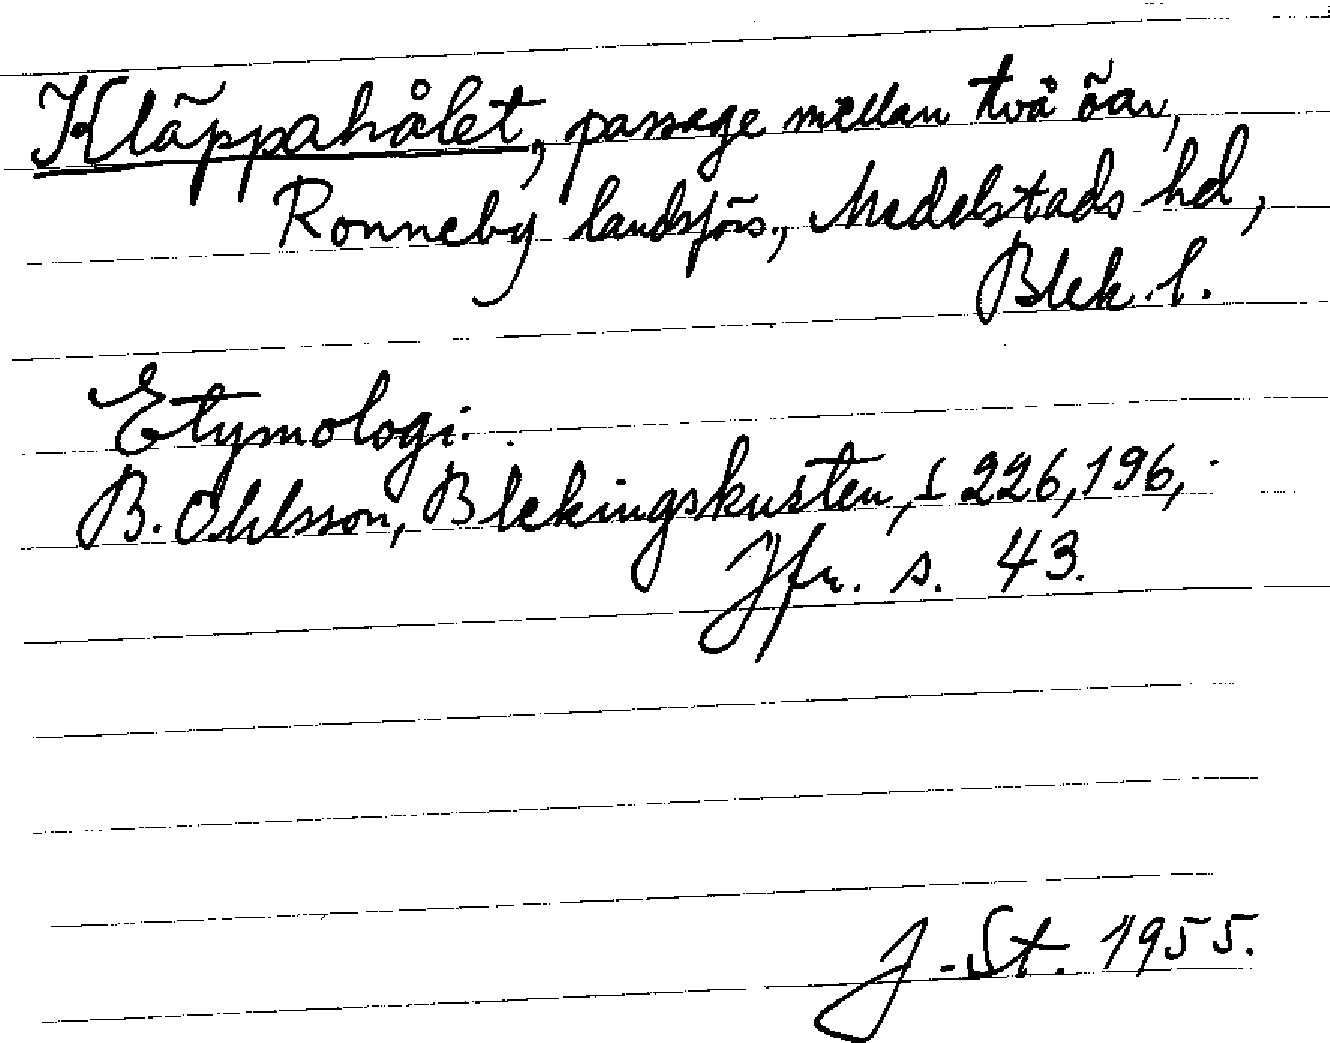 Kläppahålet, passage mellan två öar,
Ronneby landsförs., Medelstads hd,
Blek. l.
Etymologi.
B. Ohlsson, Blekingskusten, I 226, 196,
Jfr. s. 43.
J. St. 1955.